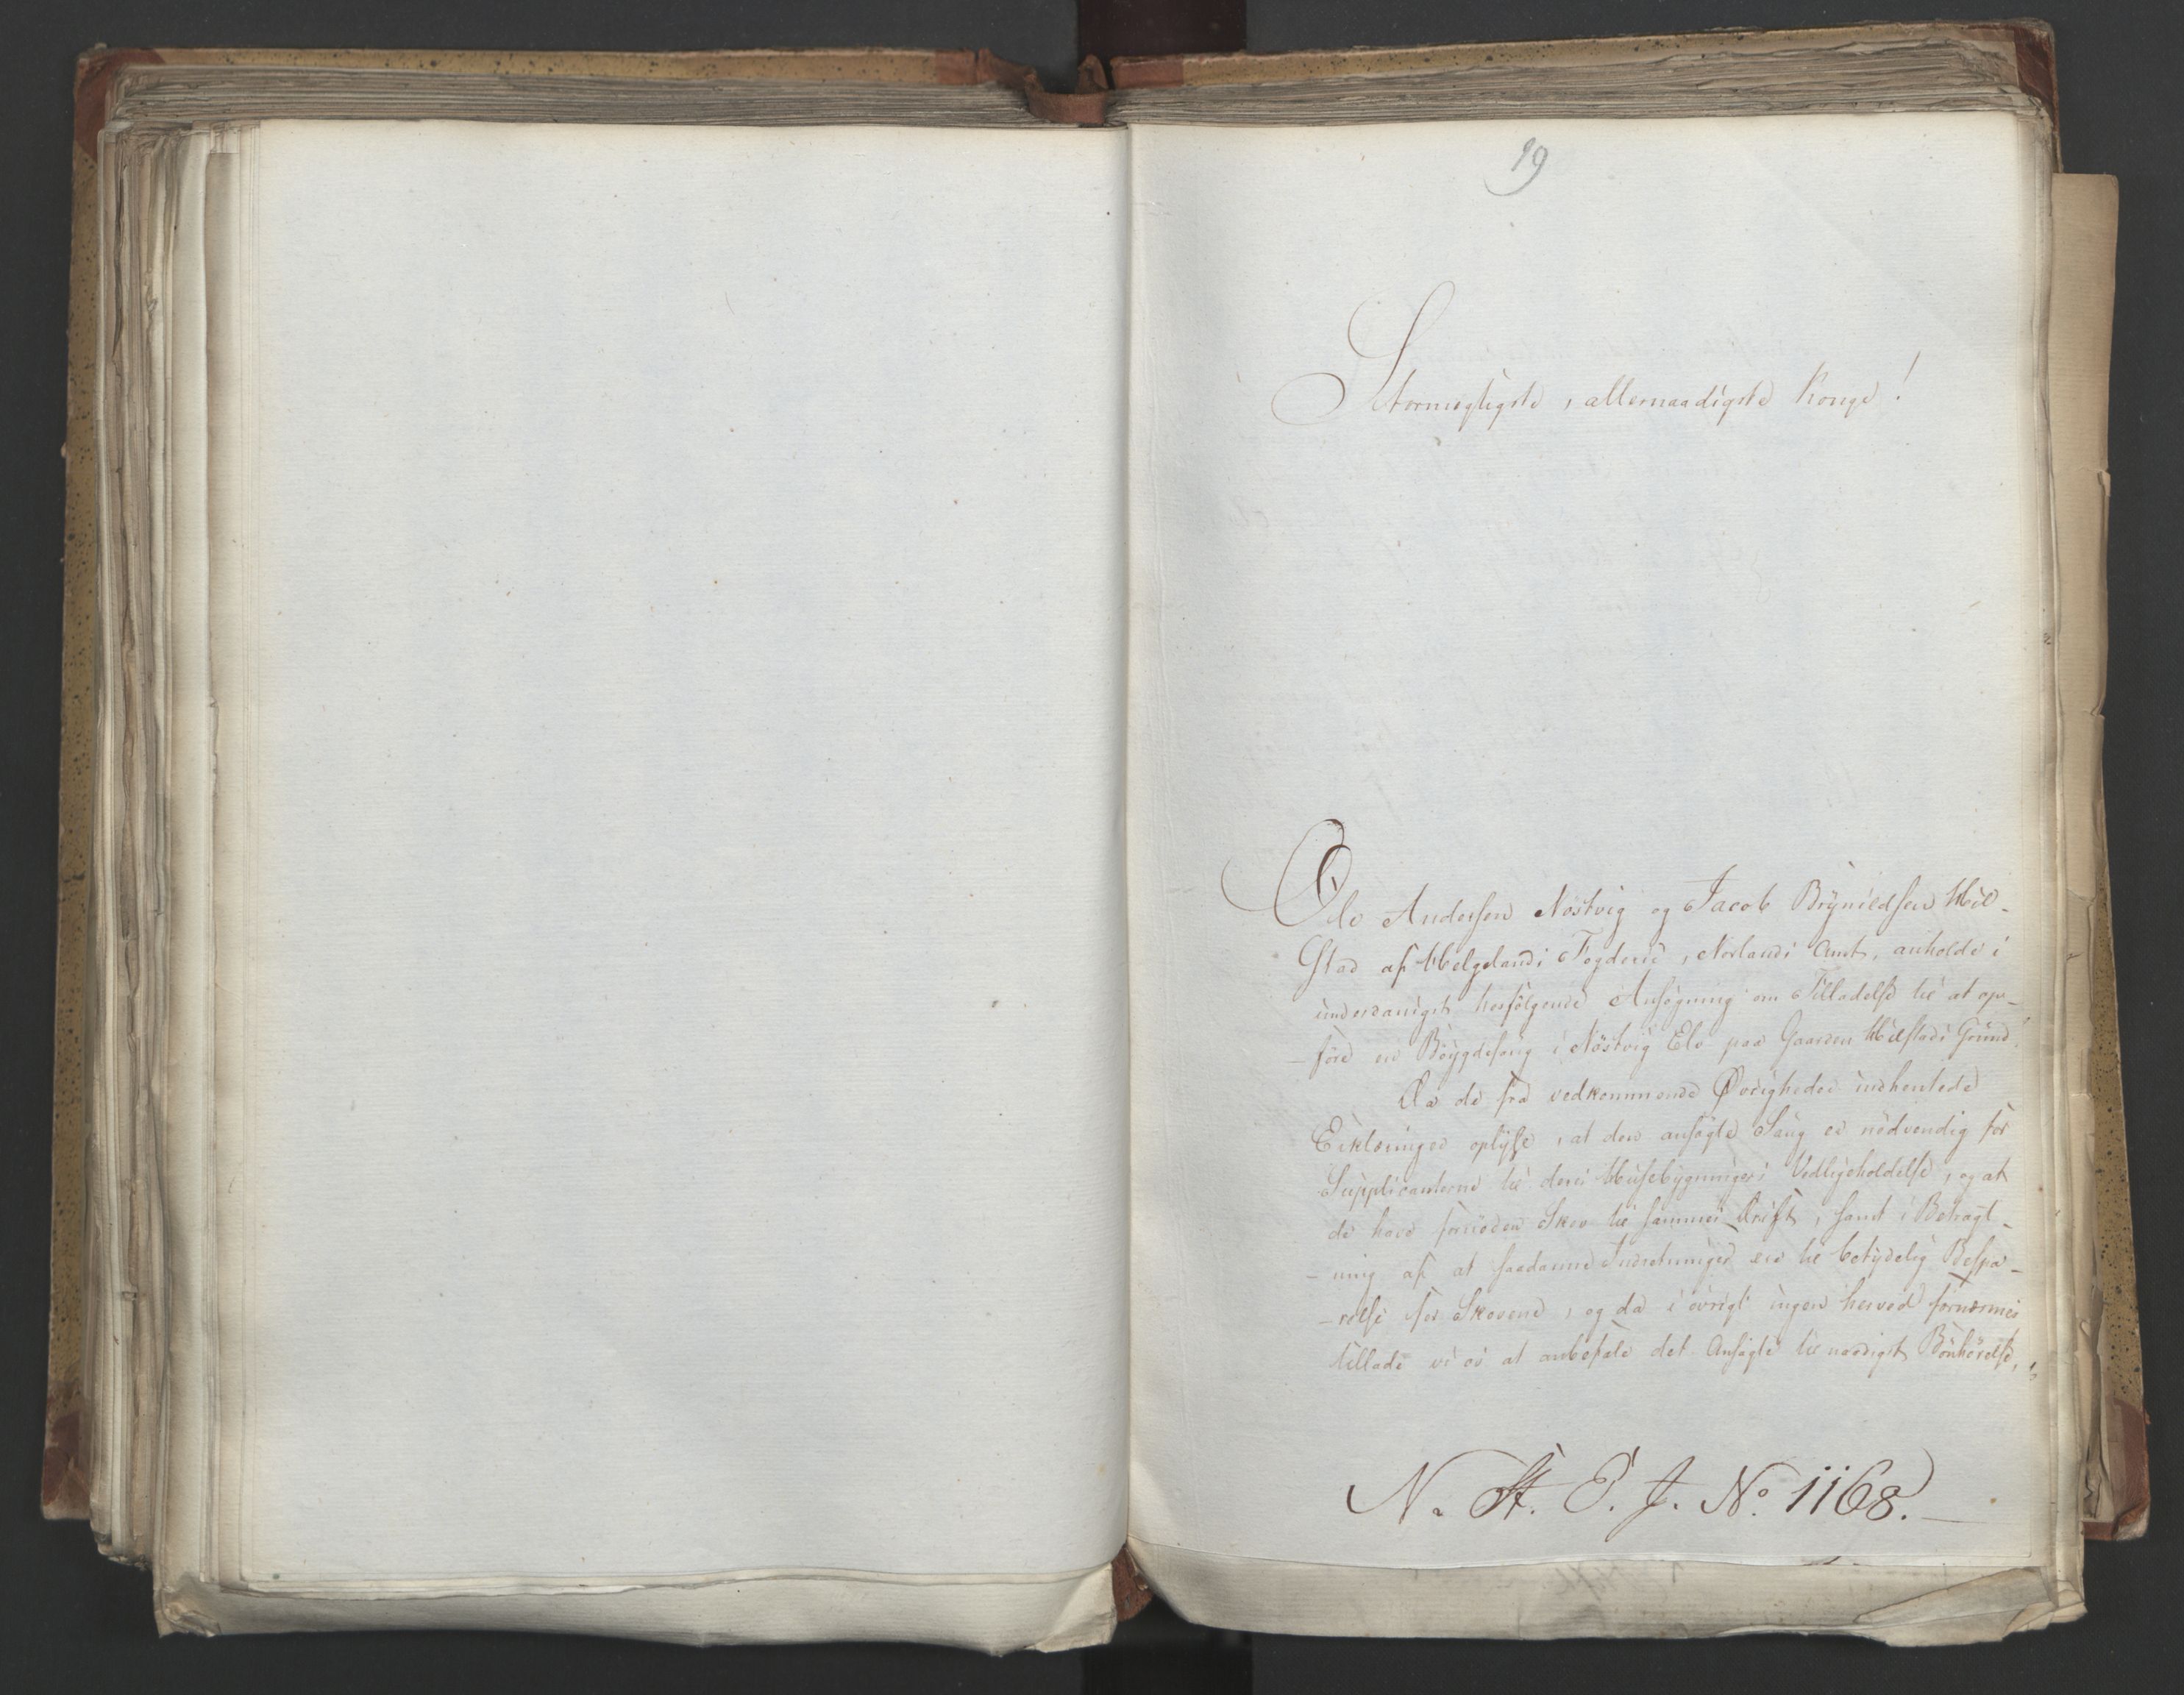 19
Stormægtigste, allernaadigste Konge!
Ole Andersen Nöstvig og Jacob Brynildsen Hil-
stad af Helgelands Fogderie, Norlands Amt, anholde i
underdanigst hosfölgende Ansögning om Tilladelse til at op-
-före en Böygdesaug i Nöstvig Elv paa Gaarden Hilstads Grund.
Da de fra vedkommende Øvrigheder indhentede
Erklæringer oplyse, at den ansögte Saug er nödvendig for
Supplicanterne til deres Huusebygningers Vedligeholdelse, og at
de have fornöden Skov til sammes Drift, samt i Betragt-
-ning af at saadanne Indretninger ere til betydelig Bespa-
-relse for Skovene, og da i övrigt ingen herved fornærmes
tillade vi os at anbefale det Ansögte til naadigst Bönhörelse,
N. St. E. J. No. 1168.